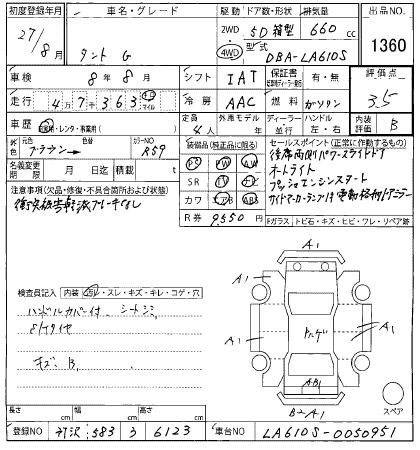 初度登録年月
27/8月
車名・グレード
タント G
駆動
2WD
4WD
ドア数・形状
5D 箱型
排気量
660 cc
型式
DBA-LA610S
出品NO.
1360
車検
8年8月
シフト
IAT
保証書
有・無
評価点
3.5
走行
4万7千363
km
マイル
冷房
AAC
燃料
ガソリン
車歴
自家用・レンタ・事業用
定員
4人
外車モデル
年
ディーラー
並行
ハンドル
左・右
内装
評価
B
外色
元色
ブラウン
カラーNO
R59
名義変更
期限
月 日迄
積載
t
装備品(純正品に限る)
PS PW
SR
カワ ABS
R券 9550 円
セールスポイント(正常に作動するもの)
後席両側パワースライドドア
オートライト
プッシュエンジンスタート
電動格納ドアミラー
注意事項(欠品・修復・不具合箇所および状態)
Fガラス トビ石・キズ・ヒビ・ワレ・リペア跡
検査員記入
内装
・スレ・キズ・キレ・コゲ・穴
ハンドルカバー付 シートシミ
キズ B
A1
A1
A1
A1
AB1
B2A1
スペア
長さ cm
幅 cm
高さ cm
登録NO
所沢 583 う 6123
車台NO
LA610S-0050951